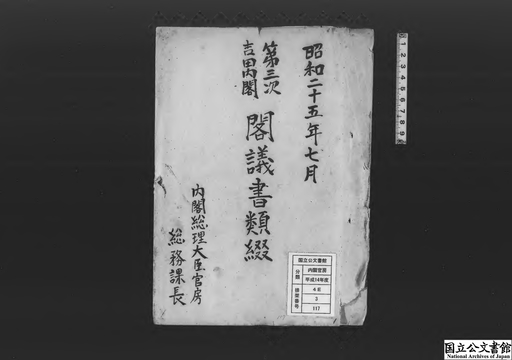 昭和二十五年七月
第三次
吉田内閣
閣議書類綴
内閣総理大臣官房
総務課長
国立公文書館
分類
内閣官房
平成14年度
4E
排架番号
3
117
1 2 3 4 5 6 7 8 9
国立公文書館
National Archives of Japan